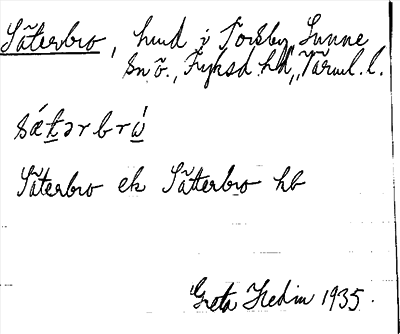 Säterbro, hmd i Torsby, Sunne
sn o., Fryksd. hd, Värml. l.
sǽt̲ərbrώ̲
Säterbro ek Sätterbro hb
Greta Hedin 1935.